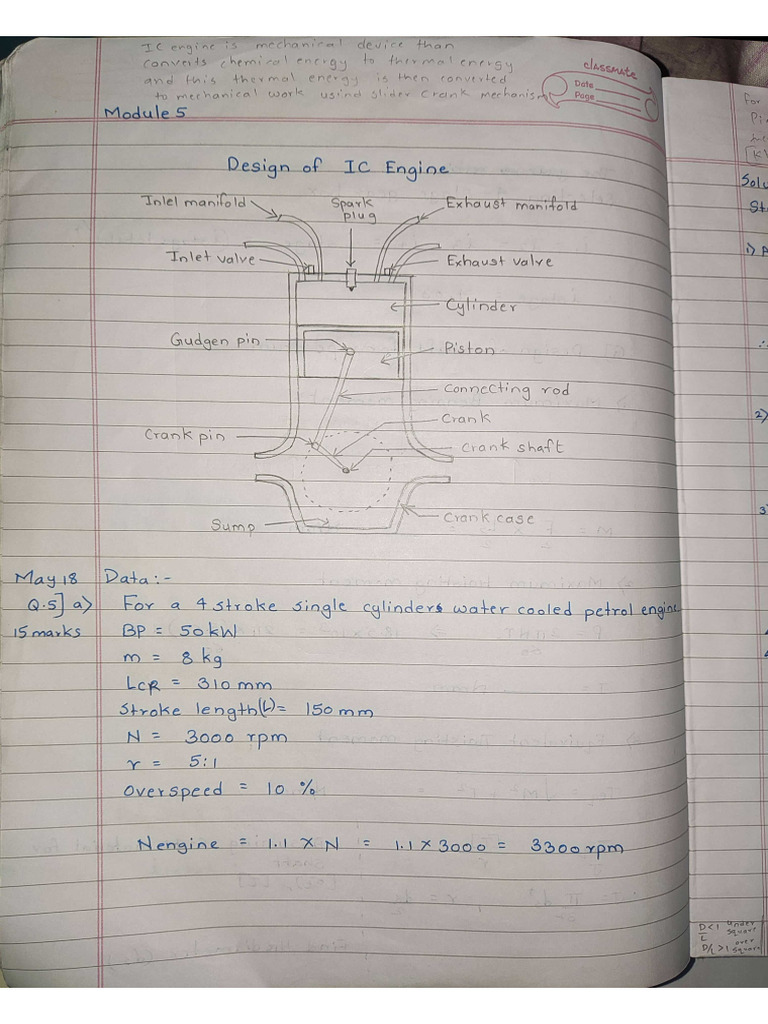 IC engine is mechanical device than
converts chemical energy to thermal energy
and this thermal energy is then converted
to mechanical work usind slider crank mechanism
classmate
Date
Page
Module 5
Design of IC Engine
Inlel manifold
Spark plug
Exhaust manifold
Inlet valve
Exhaust valve
Cylinder
Gudgen pin
Piston
Connecting rod
Crank
Crank pin
Crank shaft
Sump
Crank case
May 18 Data:-
Q.5] a) For a 4 stroke single cylinders water cooled petrol engine
15 marks BP = 50 kW
m = 8 kg
LCR = 310 mm
Stroke length (L) = 150 mm
N = 3000 rpm
r = 5:1
Overspeed = 10 %
Nengine = 1.1 × N = 1.1 × 3000 = 3300 rpm
For
Pi
[K
Solu
St
i) P
2)
3)
D/L < 1 under square
D/L > 1 over square